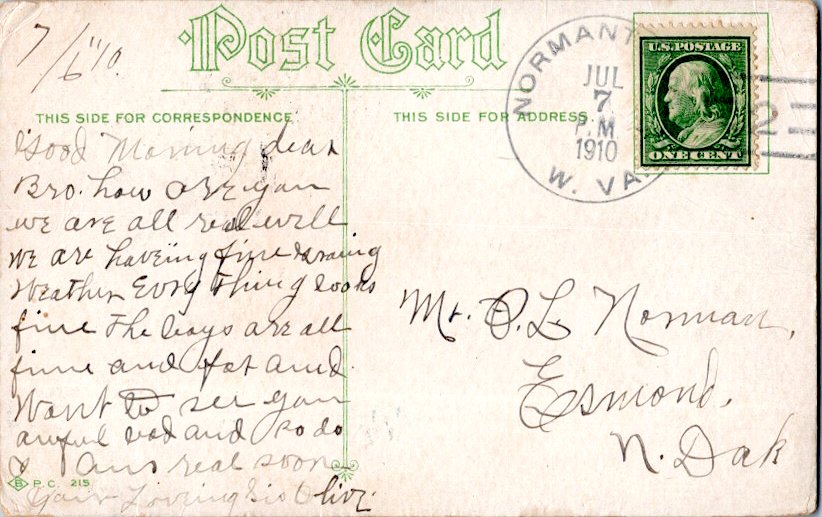 7/6"10.
Post Card
THIS SIDE FOR CORRESPONDENCE
THIS SIDE FOR ADDRESS.
NORMANT
JUL
7
P.M.
1910
W. VA.
U.S. POSTAGE
ONE CENT
2
Good Morning dear
Bro. how are you
we are all real well
we are haveing fine
Weather Evry Thing looks
fine The boys are all
fine and fat and
Want to see you
awful bad and so do
I Ans real soon
Your Loveing Sis Olive.
Mr. O. L. Norman,
Esmond,
N. Dak
B P.C. 215